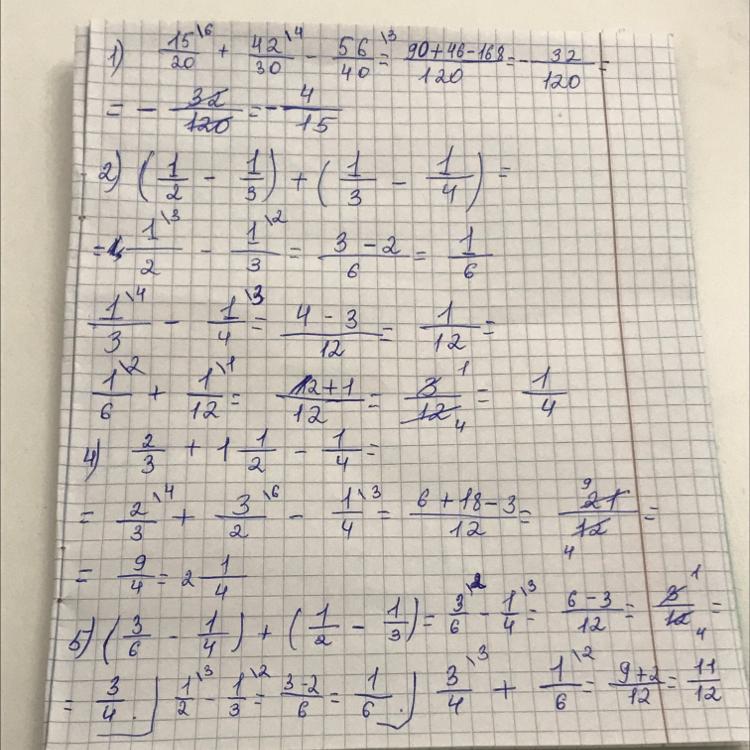 1) 15/20 \6 + 42/30 \4 - 56/40 \3 = (90+46-168)/120 = - 32/120 =
= - 32/120 = - 4/15
2) (1/2 - 1/3) + (1/3 - 1/4) =
= 1/2 \3 - 1/3 \2 = (3-2)/6 = 1/6
1/3 \4 - 1/4 \3 = (4-3)/12 = 1/12 =
1/6 \2 + 1/12 \1 = (2+1)/12 = 3/12 1 4 = 1/4
4) 2/3 + 1 1/2 - 1/4 =
= 2/3 \4 + 3/2 \6 - 1/4 \3 = (6+18-3)/12 = 21/12 9 4 =
= 9/4 = 2 1/4
5) (3/6 - 1/4) + (1/2 - 1/3) = 3/6 \2 - 1/4 \3 = (6-3)/12 = 3/12 1 4 =
= 3/4. 1/2 \3 - 1/3 \2 = (3-2)/6 = 1/6. 3/4 \3 + 1/6 \2 = (9+2)/12 = 11/12